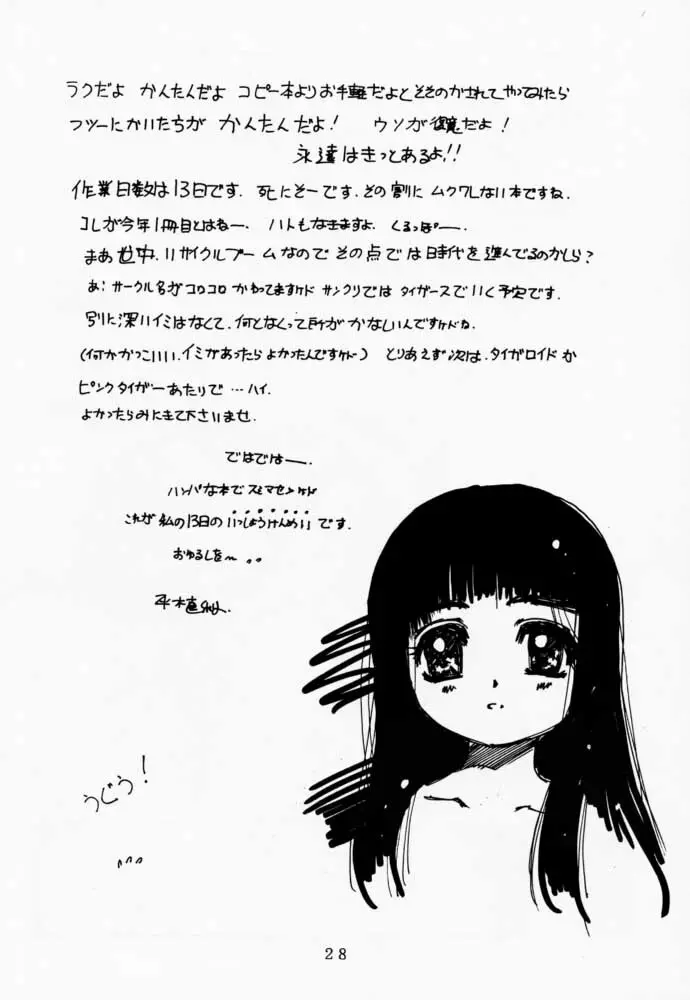 ラクだよ かんたんだよ コピー本よりお手軽だよと そそのかされて やってみたら
フツーにかいたちが かんたんだよ! ウソが 覚だよ!
永遠はきっとあるよ!!
作業日数は13日です. 死にそーです. その割に ムクワレない本ですね.
コレが今年1冊目とはねー. ハトもなきますよ. くるっぽー.
まあ 世中. リサイクルブームなので その点では時代を進んでるのかしら?
あ! サークル名が コロコロ かわってますけド サンクリでは タイガースでいく予定です.
別に深いイミはなくて. 何となくって所が かなしいんですけどね.
(何かかっこいい. イミがあったら よかったんですけド) とりあえず次は. タイガロイド か
ピンクタイガー あたりで … ハイ.
よかったらみにきて下さいませ.
ではではー.
ハンパな本で スミマセンけド
これが 私の13日の いっしょうけんめい です.
おゆるしを〜
うぐぅ!
28